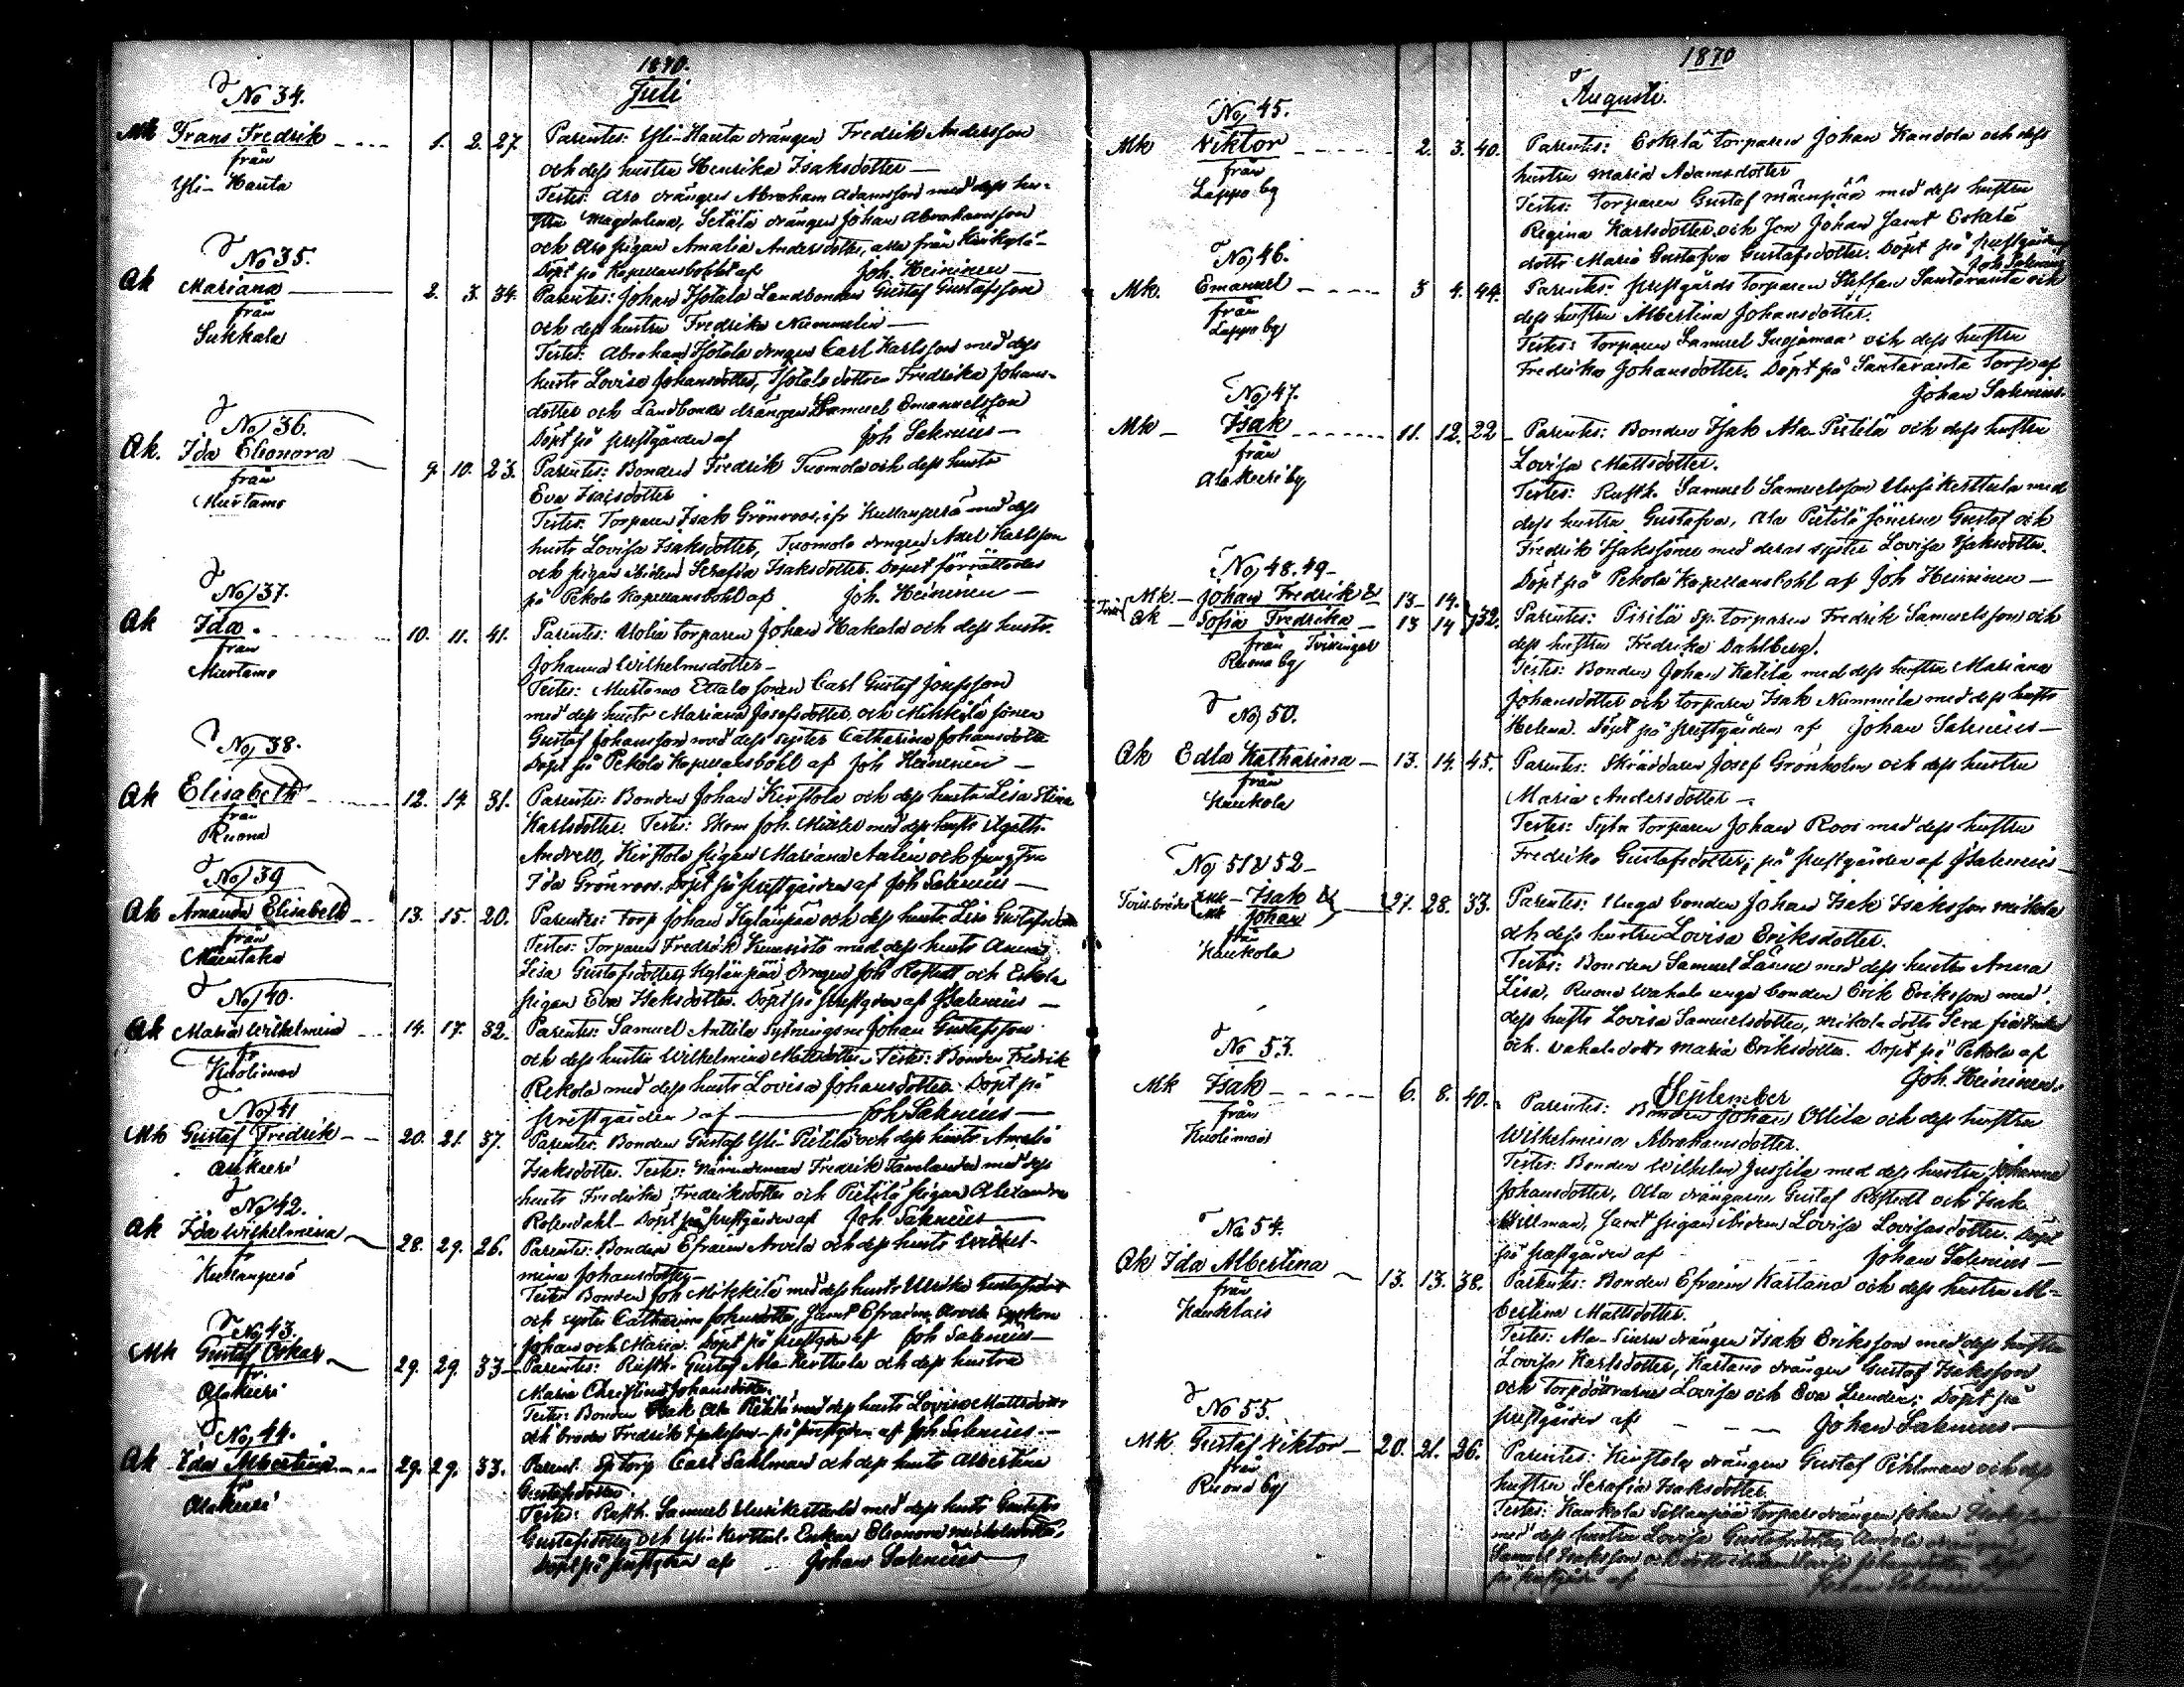 1870.
Juli
No 34.
Mk Frans Fredrik 1. 2. 27.
från
Yli-Hauta
Parentes: Yli-Hauta drängen Fredrik Andersson
och dess hustru Henrika Isaksdotter
Testes: Aro drängen Abraham Adamsson med dess hu-
stru Magdalena, Setälä drängen Johan Abrahamsson
och Aro pigan Amalia Andersdotter, alla från
Döpt på Kapellansbohlet af Joh. Heininen
No 35.
Ak Mariana 2. 3. 34.
från
Sukkala
Parentes: Johan Isotalo Landbonden Gustaf Gustafsson
och dess hustru Fredrika Nummelin
Testes: Abraham Isotalo drängen Carl Karlsson med dess
hustr Lovisa Johansdotter, Isotalo dottren Fredrika Johans-
dotter och Landbonde drängen Samuel Emanuelsson
Döpt på prestgården af Joh Salenius
No 36.
Ak. Ida Eleonora 9. 10. 23.
från
Murtamo
Parentes: Bonden Fredrik Tuomola och dess hustr
Eva Isaksdotter
Testes: Torparen Isak Grönroos, ifr Kullanperä med dess
hustr Lovisa Isaksdotter, Tuomola drngen Axel Karlsson
och pigan ibidem Serafia Isaksdotter. Dopet förrättades
på Pekola Kapellansbohl af Joh. Heininen
No 37.
Ak Ida. 10. 11. 41.
från
Murtamo
Parentes: Uolia torparen Johan Hakala och dess hustr.
Johanna Wilhelmsdotter
Testes: Murtamo Ettala sonen Carl Gustaf Josefsson
med dess hustr Mariana Josefsdotter, och Mikkilä sonen
Gustaf Johansson med dess syster Catharina Johansdotter
Döpt på Pekola Kapellansbohl af Joh Heininen
No 38.
Ak Elisabeth 12. 14. 31.
från
Ruona
Parentes: Bonden Johan Kirstola och dess hustr Lisa Stina
Karlsdotter. Testes: Skom Joh. Miller med dess hustr Agath.
Andrew, Kirstola pigan Mariana Aalin och jungfru
Ida Grönroos. Döpt på prestgården af Joh Salenius
No 39
Ak Amanda Elisabeth 13. 15. 20.
från
Mäentaka
Parentes: Torp Johan Kylänpää och dess hustr Lisa Gustafsdotter
Testes: Torparen Fredrik Kuusisto med dess hustr Anna
Lisa Gustafsdotter, Kylänpää drngen Joh Rostedt och Eskola
pigan Eva Isaksdotter. Döpt på prestgden af J Salenius
No 40.
Ak Maria Wilhelmina 14. 17. 32.
fr
Kuolimaa
Parentes: Samuel Anttila Sytningsm Johan Gustafsson
och dess hustru Wilhelmina Mattsdotter. Testes: Bonden Fredrik
Rekola med dess hustr Lovisa Johansdotter. Döpt på
prestgården af Joh Salenius
No 41
Mk Gustaf Fredrik 20. 21. 37.
Alakeeri
Parentes: Bonden Gustaf Yli-Pietilä och dess hustr. Amalia
Isaksdotter. Testes: Nämndeman Fredrik Tamlander med dess
hustr Fredrika Fredriksdotter och Pietilä pigan Alexandra
Rosendahl. Döpt på prestgården af Joh. Salenius
No 42.
Ak Ida Wilhelmina 28. 29. 26.
fr
Kullanperä
Parentes: Bonden Efraim Arvela och dess hustr Wilhel-
mina Johansdotter
Testes Bonden Joh Mikkilä med dess hustr Ulrika Gustafsdotter
och syster Catharina Johansdotter, samt Efraim Arvela syskon
Johan och Maria. Döpt på prestgden af Joh Salenius
No 43.
Mk Gustaf Oskar 29. 29. 33
fr.
Alakeeri
Parentes: Rusth. Gustaf Ala-Kerttula och dess hustru
Maria Christina Johansdotter.
Testes: Bonden Isak Ala Pietilä med dess hustr Lovisa Mattsdotter
och broder Fredrik Isaksson på prestgden af Joh Salenius.
No 44.
Ak Ida Albertina 29. 29. 33.
fr
Alakeeri
Parent. Sp torp Carl Sahlman och dess hustr Albertina
Gustafsdotter.
Testes: Rusth. Samuel Uusikerttula med dess hustr Gustafva
Gustafsdotter och Yli-Kerttula Enkan Eleonora
Döpt på prestgden af Johan Salenius
1870
Augusti.
No 45.
Mk Viktor 2. 3. 40.
från
Lappo by
Parentes: Eskelä torparen Johan Kandola och dess
hustru Maria Adamsdotter
Testes: Torparen Gustaf Mäenpää med dess hustru
Regina Karlsdotter, och son Johan samt Eskelä
dottr Maria Gustafva Gustafsdotter. Döpt på prestgården
Joh Salenius
No 46.
Mk. Emanuel 3 4. 44.
från
Lappo by
Parentes: prestgårds torparen Steffan Santaranta och
dess hustru Albertina Johansdotter.
Testes: Torparen Samuel Suojamaa och dess hustru
Fredrika Johansdotter. Döpt på Santaranta Torp af
Johan Salenius.
No 47.
Mk Isak 11. 12. 22
från
Alakeeri by
Parentes: Bonden Isak Ala-Pietilä och dess hustru
Lovisa Mattsdotter.
Testes: Rusth. Samuel Samuelsson Uusikerttula med
dess hustru Gustafva, Ala Pietilä sönerne Gustaf och
Fredrik Isakssöner med deras syster Lovisa Isaksdotter.
Döpt på Pekola Kapellansbohl af Joh Heininen
No 48. 49
Mk. Johan Fredrik & 13 14.
Ak Sofia Fredrika 13 14 32.
från Tvillingar
Ruona by
Parentes: Pirilä Sp. torparen Fredrik Samuelsson och
dess hustru Fredrika Dahlberg.
Testes: Bonden Johan Katila med dess hustru Mariana
Johansdotter och torparen Isak Nummila med dess hustr
Helena. Döpt på prestgården af Johan Salenius
No 50.
Ak Edla Katharina 13. 14. 45.
från
Haukola
Parentes: Skräddaren Josef Grönholm och dess hustru
Maria Andersdotter
Testes: torparen Johan Roos med dess hustru
Fredrika Gustafsdotter; på prestgården af J Salenius
No 51 & 52
Tvill.bröder Mk Isak &
Mk Johan 27. 28. 33.
från
Haukola
Parentes: Unga bonden Johan Isak Isaksson Mikola
och dess hustru Lovisa Eriksdotter.
Testes: Bonden Samuel Länsi med dess hustru Anna
Lisa, Ruona Wahala unga bonden Erik Eriksson med
dess hustr Lovisa Samuelsdotter, Mikola dottr
och Vahala dottr Maria Eriksdotter. Döpt på Pekola af
Joh. Heininen.
September
No 53.
Mk Isak 6. 8. 40.
från
Kuolimaa
Parentes: Bonden Johan Ollila och dess hustru
Wilhelmina Abrahamsdotter.
Testes: Bonden Wilhelm Jussila med dess hustru Johanna
Johansdotter, Olla drängarne Gustaf Rostedt och Isak
Hillman, samt pigan ibidem Lovisa Lovisasdotter. Döpt
på prestgården af Johan Salenius
No 54.
Ak Ida Albertina 13. 13. 38.
från
Kauklais
Parentes: Bonden Efraim Kartano och dess hustru Al-
bertina Mattsdotter.
Testes: drängen Isak Eriksson med dess hustru
Lovisa Karlsdotter, Kartano drängen Gustaf Isaksson
och Torpdöttrarne Lovisa och Eva Lundén; Döpt på
prestgården af Johan Salenius
No 55.
Mk. Gustaf Viktor 20. 21. 26.
från
Ruona by
Parentes: Kirstola drängen Gustaf Pihlman och dess
hustru Serafia Isaksdotter.
Testes: Haukola torpare drängen Johan
med dess hustru Lovisa Gustafsdotter
Samuel Isaksson och
på prestgården af Johan Salenius